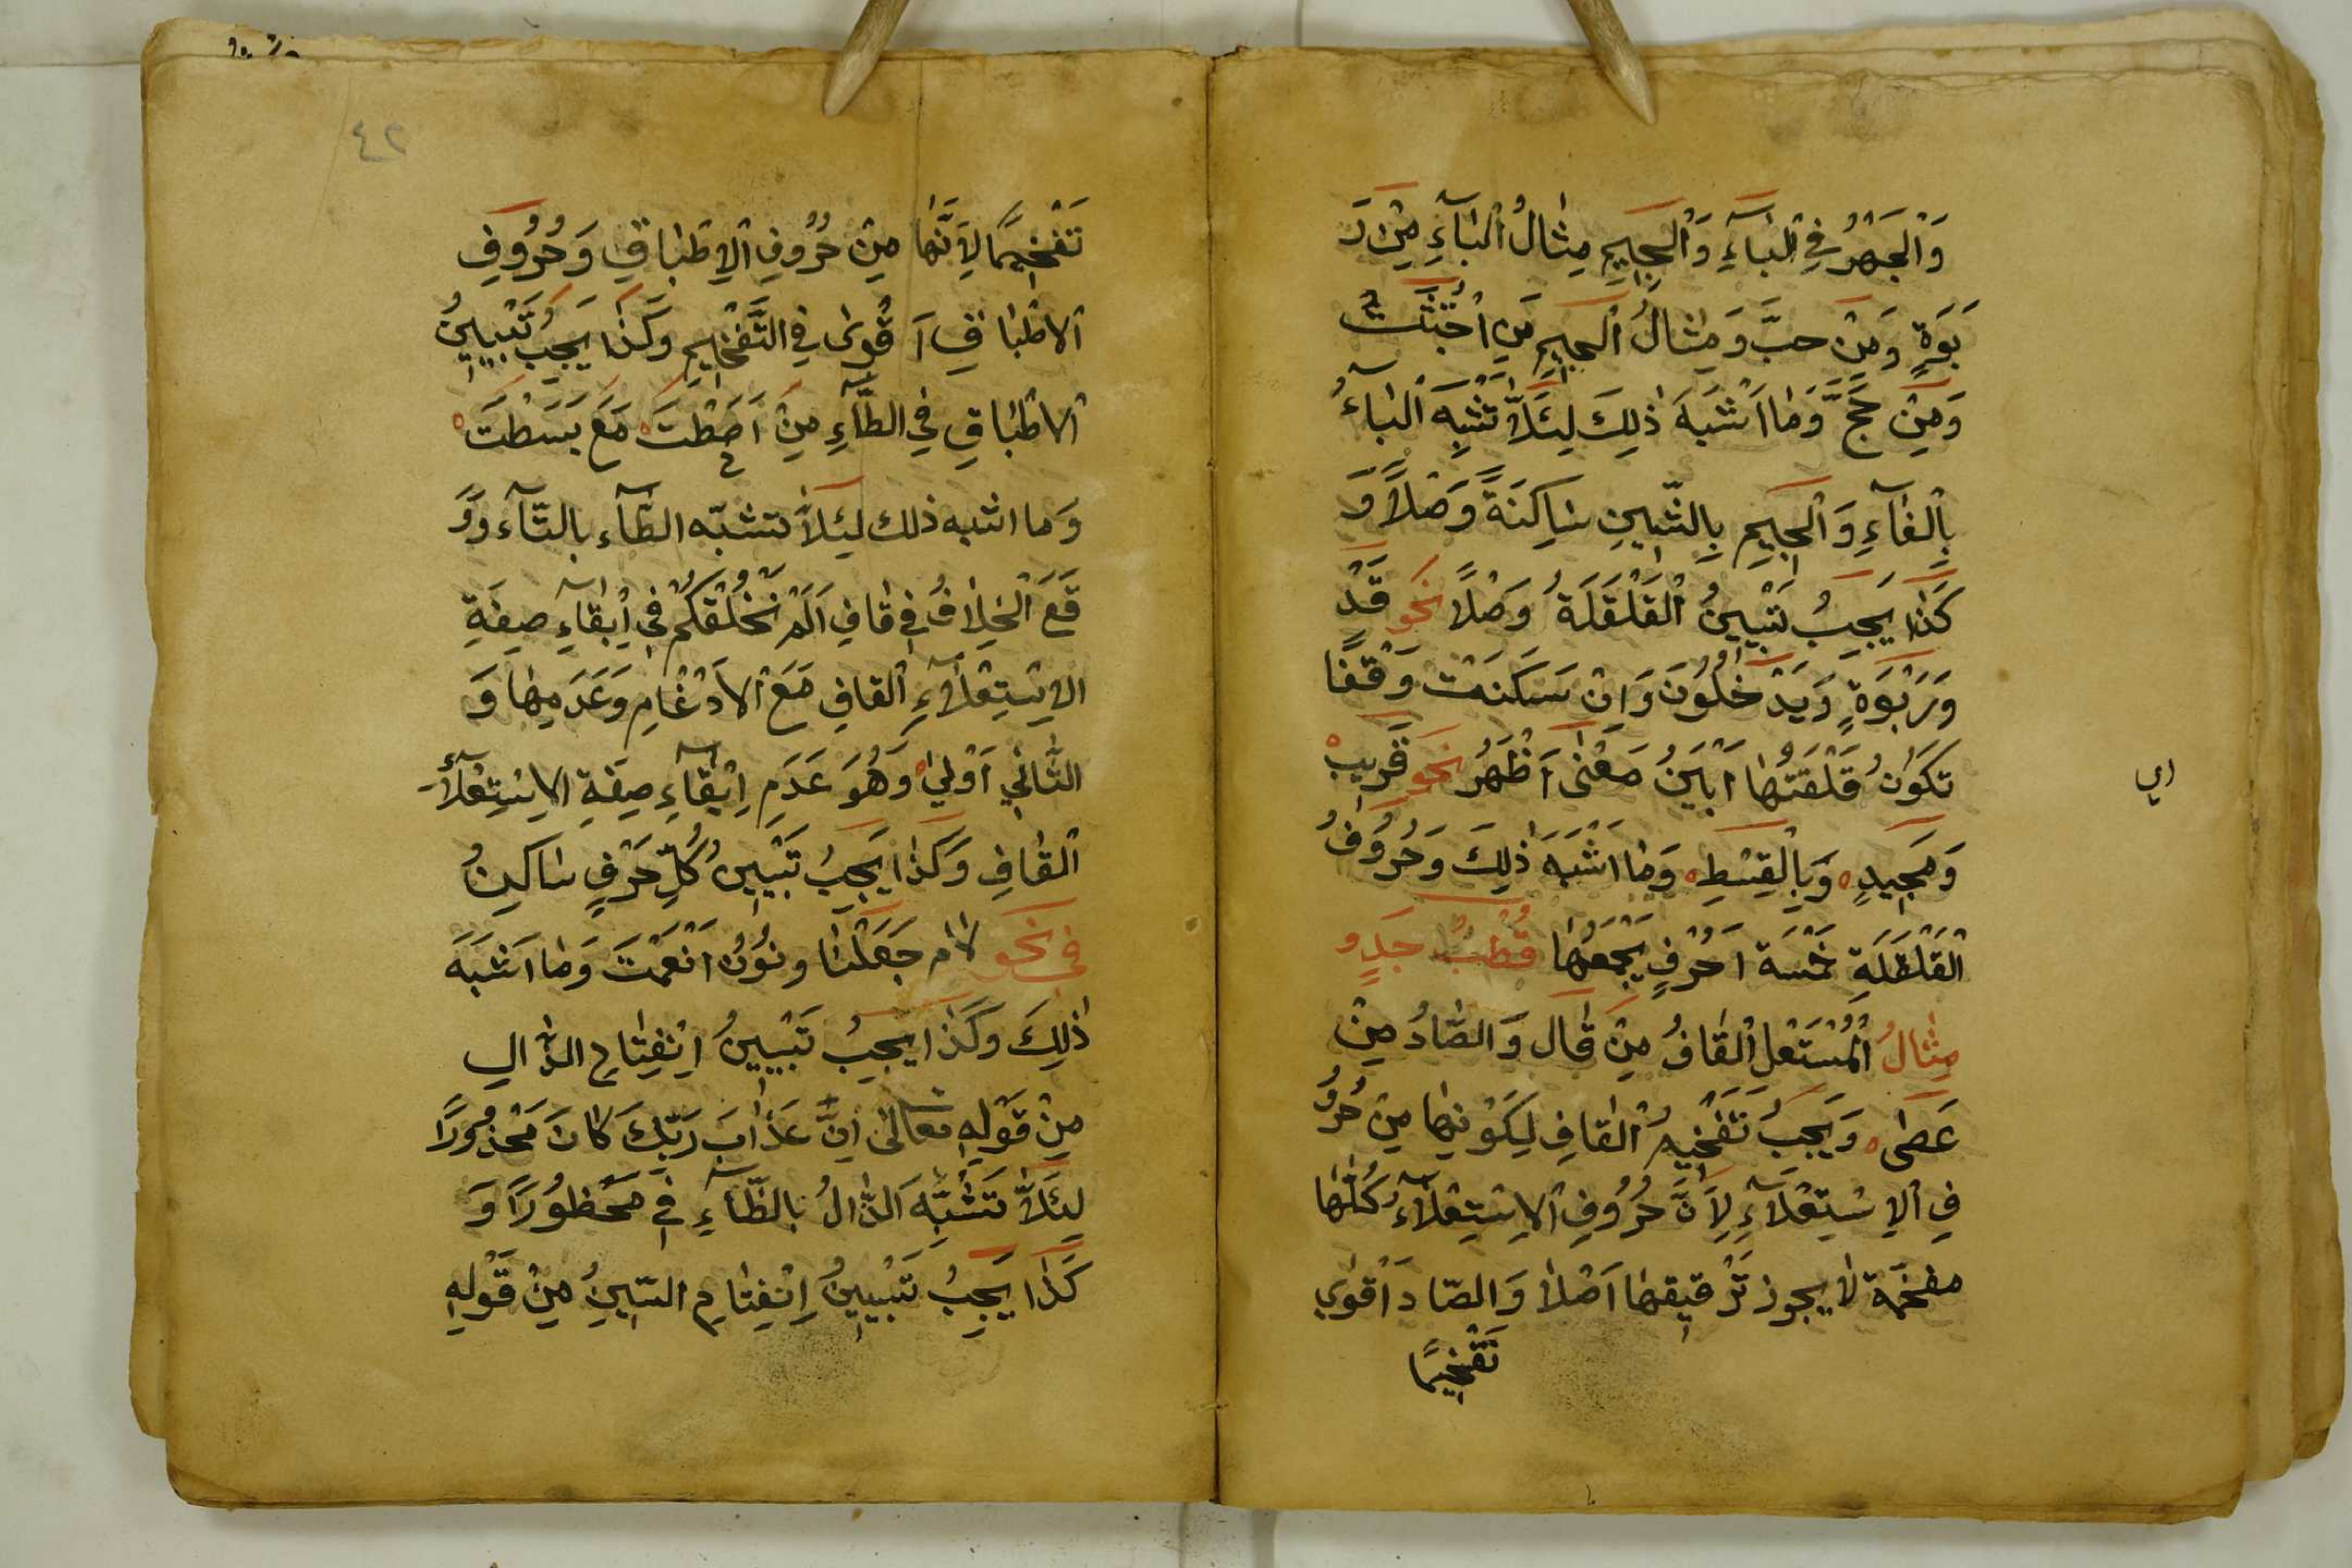 وَالْجَهْرُ فِي الْبَآءِ وَالْجِيمِ مِثَالُ الْبَآءِ مِنْ رَ
بَوَةٍ وَمِنْ حبَّ وَمِثَالُ الْجِيمِ مِن اجْتُثَّت
وَمِنْ حَجَّ وَمَا اَشْبَهَ ذٰلِكَ لِئَلاَّ تَشْبِهَ الْبَآءُ
بِالْفَآءِ وَالْجِيمِ بِالشِّينِ سَاكِنَةً وَصْلًا وَ
كَذَا يَجِبُ تَبْيِينُ الْقَلْقَلَةُ وَصْلًا نَحو قَدْ
وَرَبْوَةٍ وَيَدْخُلُونَ وَاِنْ سَكَنَتْ وَقْفًا
تكوَنُ قَلْقَتُهَا اَبْيَنُ مَعْنٰى اَظْهَرُ نَحو قَريبْ
اي
وَمَجِيدٍ وَبِالْقِسْطِ وَمَا اشْبَهَ ذٰلِكَ وَحُرُوفُ
الْقَلْقَلَةِ خَمْسَة اَحْرُفٍ يَجْمَعُهَا قُطْبُ جَدٍ و
مِثَالُ الْمُسْتَعْل الْقَافُ مِنْ قَالَ وَالصَّادُ مِنْ
عَصٰى وَيَجِبُ تَفْخِيمُ الْقافِ لِكَوْنِهَا مِنْ حُرُو
فِ الْاِسْتِعْلَآءِ لِاَنَّ حُرُوفِ الْاِسْتِعْلَآءِ كُلَّهَا
مفخّمة لا يجوز تَرْقيقهَا اَصْلاً وَالصَّادَ اَقوٰي
تَفْخِيمًا
٤٢
تَفْخِيمًا لِاَنَّهَا مِنْ حُرُوفِ الْاِطْبَاقِ وَحُرُوفِ
الْاطْبَاقِ اَقْوىٰ فِي التَّفْخِيمِ وَكَذَا يَجِبُ تَبْيِينُ
الْاطْبَاقِ فِي الطَّآءِ مِنْ اَحَطْتَ مَعَ بَسَطْتَ
وَما اشبه ذلك لِئَلاَّ تتشبّه الطَّآء بالتَّآء وَوَ
قَعَ الْخِلَافُ فِي قَافِ اَلَمْ نَخْلُقْكُمْ فِي اِبْقَآءِ صِفَةِ
الاِسْتِعْلَآءِ الْقافِ مَعَ الْاِدْغَامِ وَعَدَمِهَا وَ
الثَّانِي اَوْلىٰ وَهُوَ عَدَمِ اِبْقَآءِ صِفَةِ الاِسْتِعْلَآءِ
الْقَافِ وَكَذَا يَجِبُ تَبْيِينُ كُلِّ حَرْفٍ سَاكِنُ
فِي نَحو لام جَعَلْنَا ونُوْنُ اَنْعَمْتَ وَمَا اَشْبَهَ
ذٰلِكَ وَكَذَا يَجِبُ تَبْيِينُ اِنْفِتَاحِ الذَّالِ
مِنْ قَوْلِهِ تعالىٰ اِنَّ عَذَابَ رَبِّكَ كَانَ مَحْذُورًا
لِئَلاَّ تَشْتَبِهَ الذَّالُ بِالظَّاءِ فِي مَحْظُورًا وَ
كَذَا يَجِبُ تَبْيِينُ اِنْفِتَاحِ السِّينُ مِنْ قَوْلِهِ